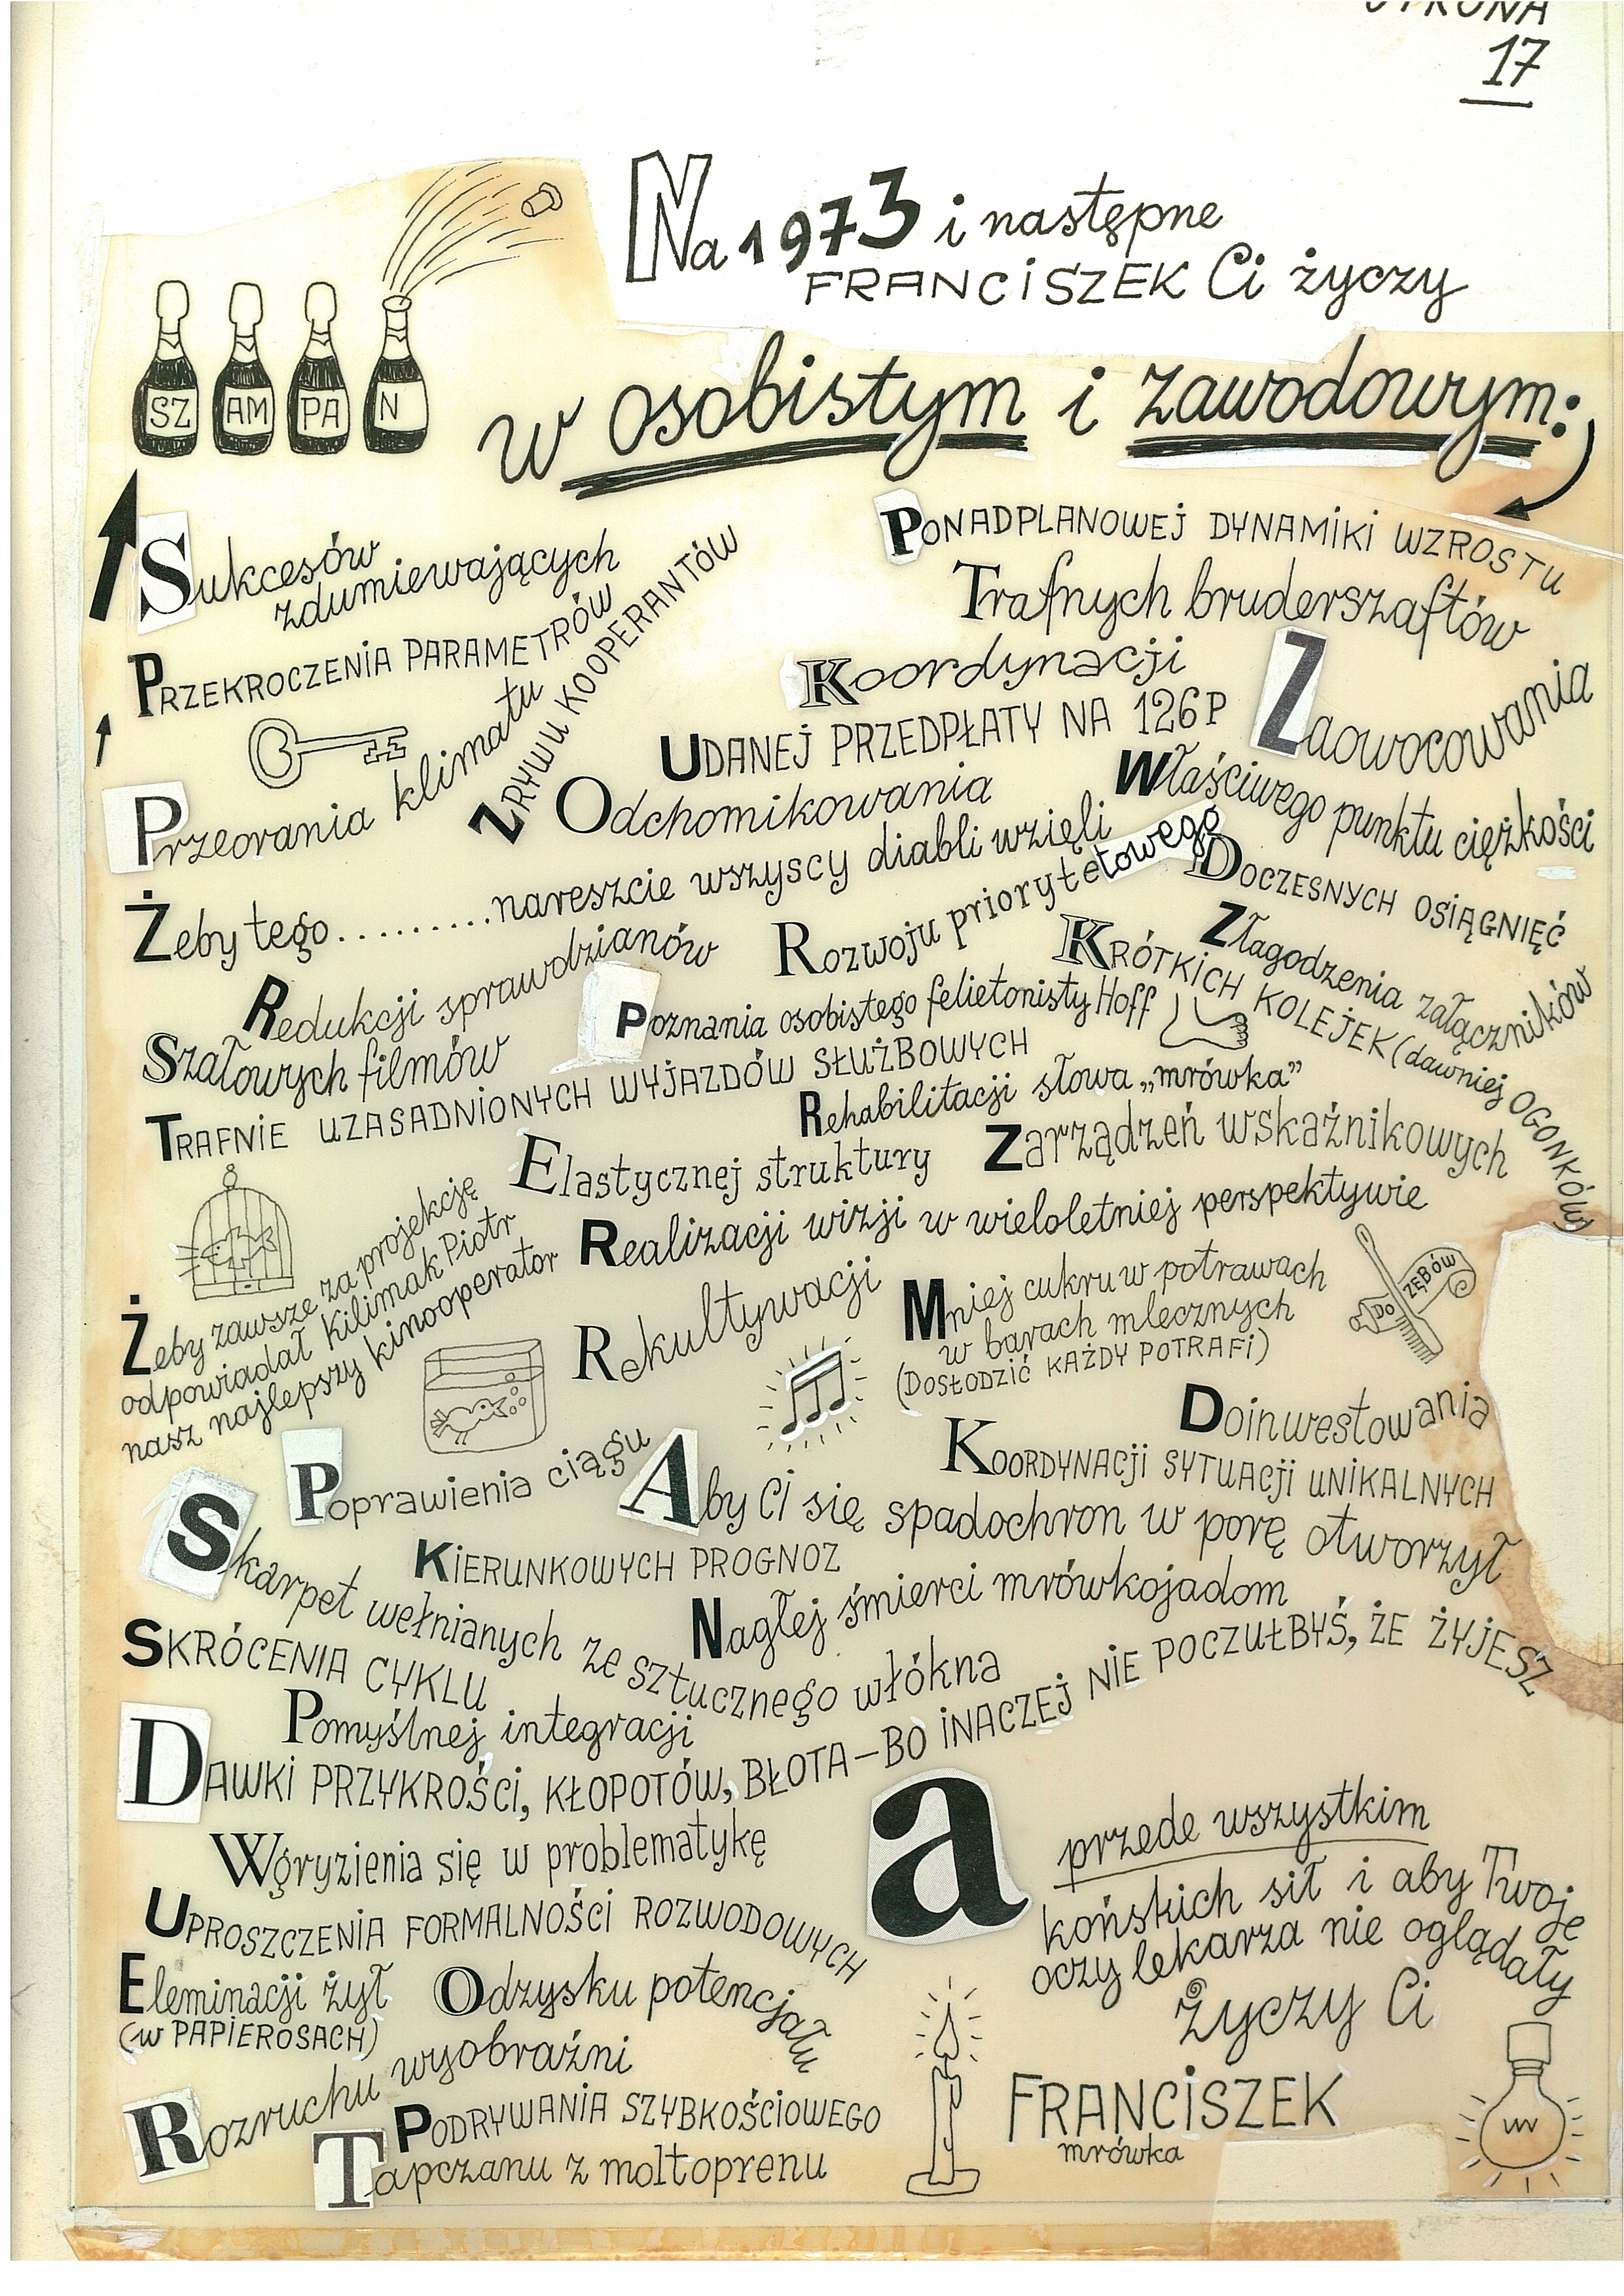 STRONA
17
Na 1973 i następne
FRANCISZEK Ci życzy
SZ AM PA N
w osobistym i zawodowym:
Sukcesów
zdumiewających
PRZEKROCZENIA PARAMETRÓW
Przeorania klimatu
ZRYWU KOOPERANTÓW
PONADPLANOWEJ DYNAMIKI WZROSTU
Trafnych bruderszaftów
Koordynacji
Zaowocowania
UDANEJ PRZEDPŁATY NA 126P
Odchomikowania
Właściwego punktu ciężkości
Żeby tego.........nareszcie wszyscy diabli wzięli
Rozwoju priorytetowego
DOCZESNYCH OSIĄGNIĘĆ
Redukcji sprawdzianów
Złagodzenia załączników
KRÓTKICH KOLEJEK (dawniej OGONKÓW)
Szałowych filmów
Poznania osobistego felietonisty Hoff
TRAFNIE UZASADNIONYCH WYJAZDÓW SŁUŻBOWYCH
Rehabilitacji słowa „mrówka"
Elastycznej struktury
Zarządzeń wskaźnikowych
Żeby zawsze za projekcję
odpowiadał Kilimak Piotr
nasz najlepszy kinooperator
Realizacji wizji w wieloletniej perspektywie
Rekultywacji
Mniej cukru w potrawach
w barach mlecznych
(DOSŁODZIĆ KAŻDY POTRAFI)
DO ZĘBÓW
Doinwestowania
Poprawienia ciągu
KOORDYNACJI SYTUACJI UNIKALNYCH
Aby Ci się spadochron w porę otworzył
Skarpet wełnianych ze sztucznego włókna
KIERUNKOWYCH PROGNOZ
Nagłej śmierci mrówkojadom
SKRÓCENIA CYKLU
Pomyślnej integracji
DAWKI PRZYKROŚCI, KŁOPOTÓW, BŁOTA – BO INACZEJ NIE POCZUŁBYŚ, ŻE ŻYJESZ
Wgryzienia się w problematykę
UPROSZCZENIA FORMALNOŚCI ROZWODOWYCH
Eleminacji żył
(W PAPIEROSACH)
Odzysku potencjału
Rozruchu wyobraźni
PODRYWANIA SZYBKOŚCIOWEGO
Tapczanu z moltoprenu
a przede wszystkim
końskich sił i aby Twoje
oczy lekarza nie oglądały
życzy Ci
FRANCISZEK
mrówka